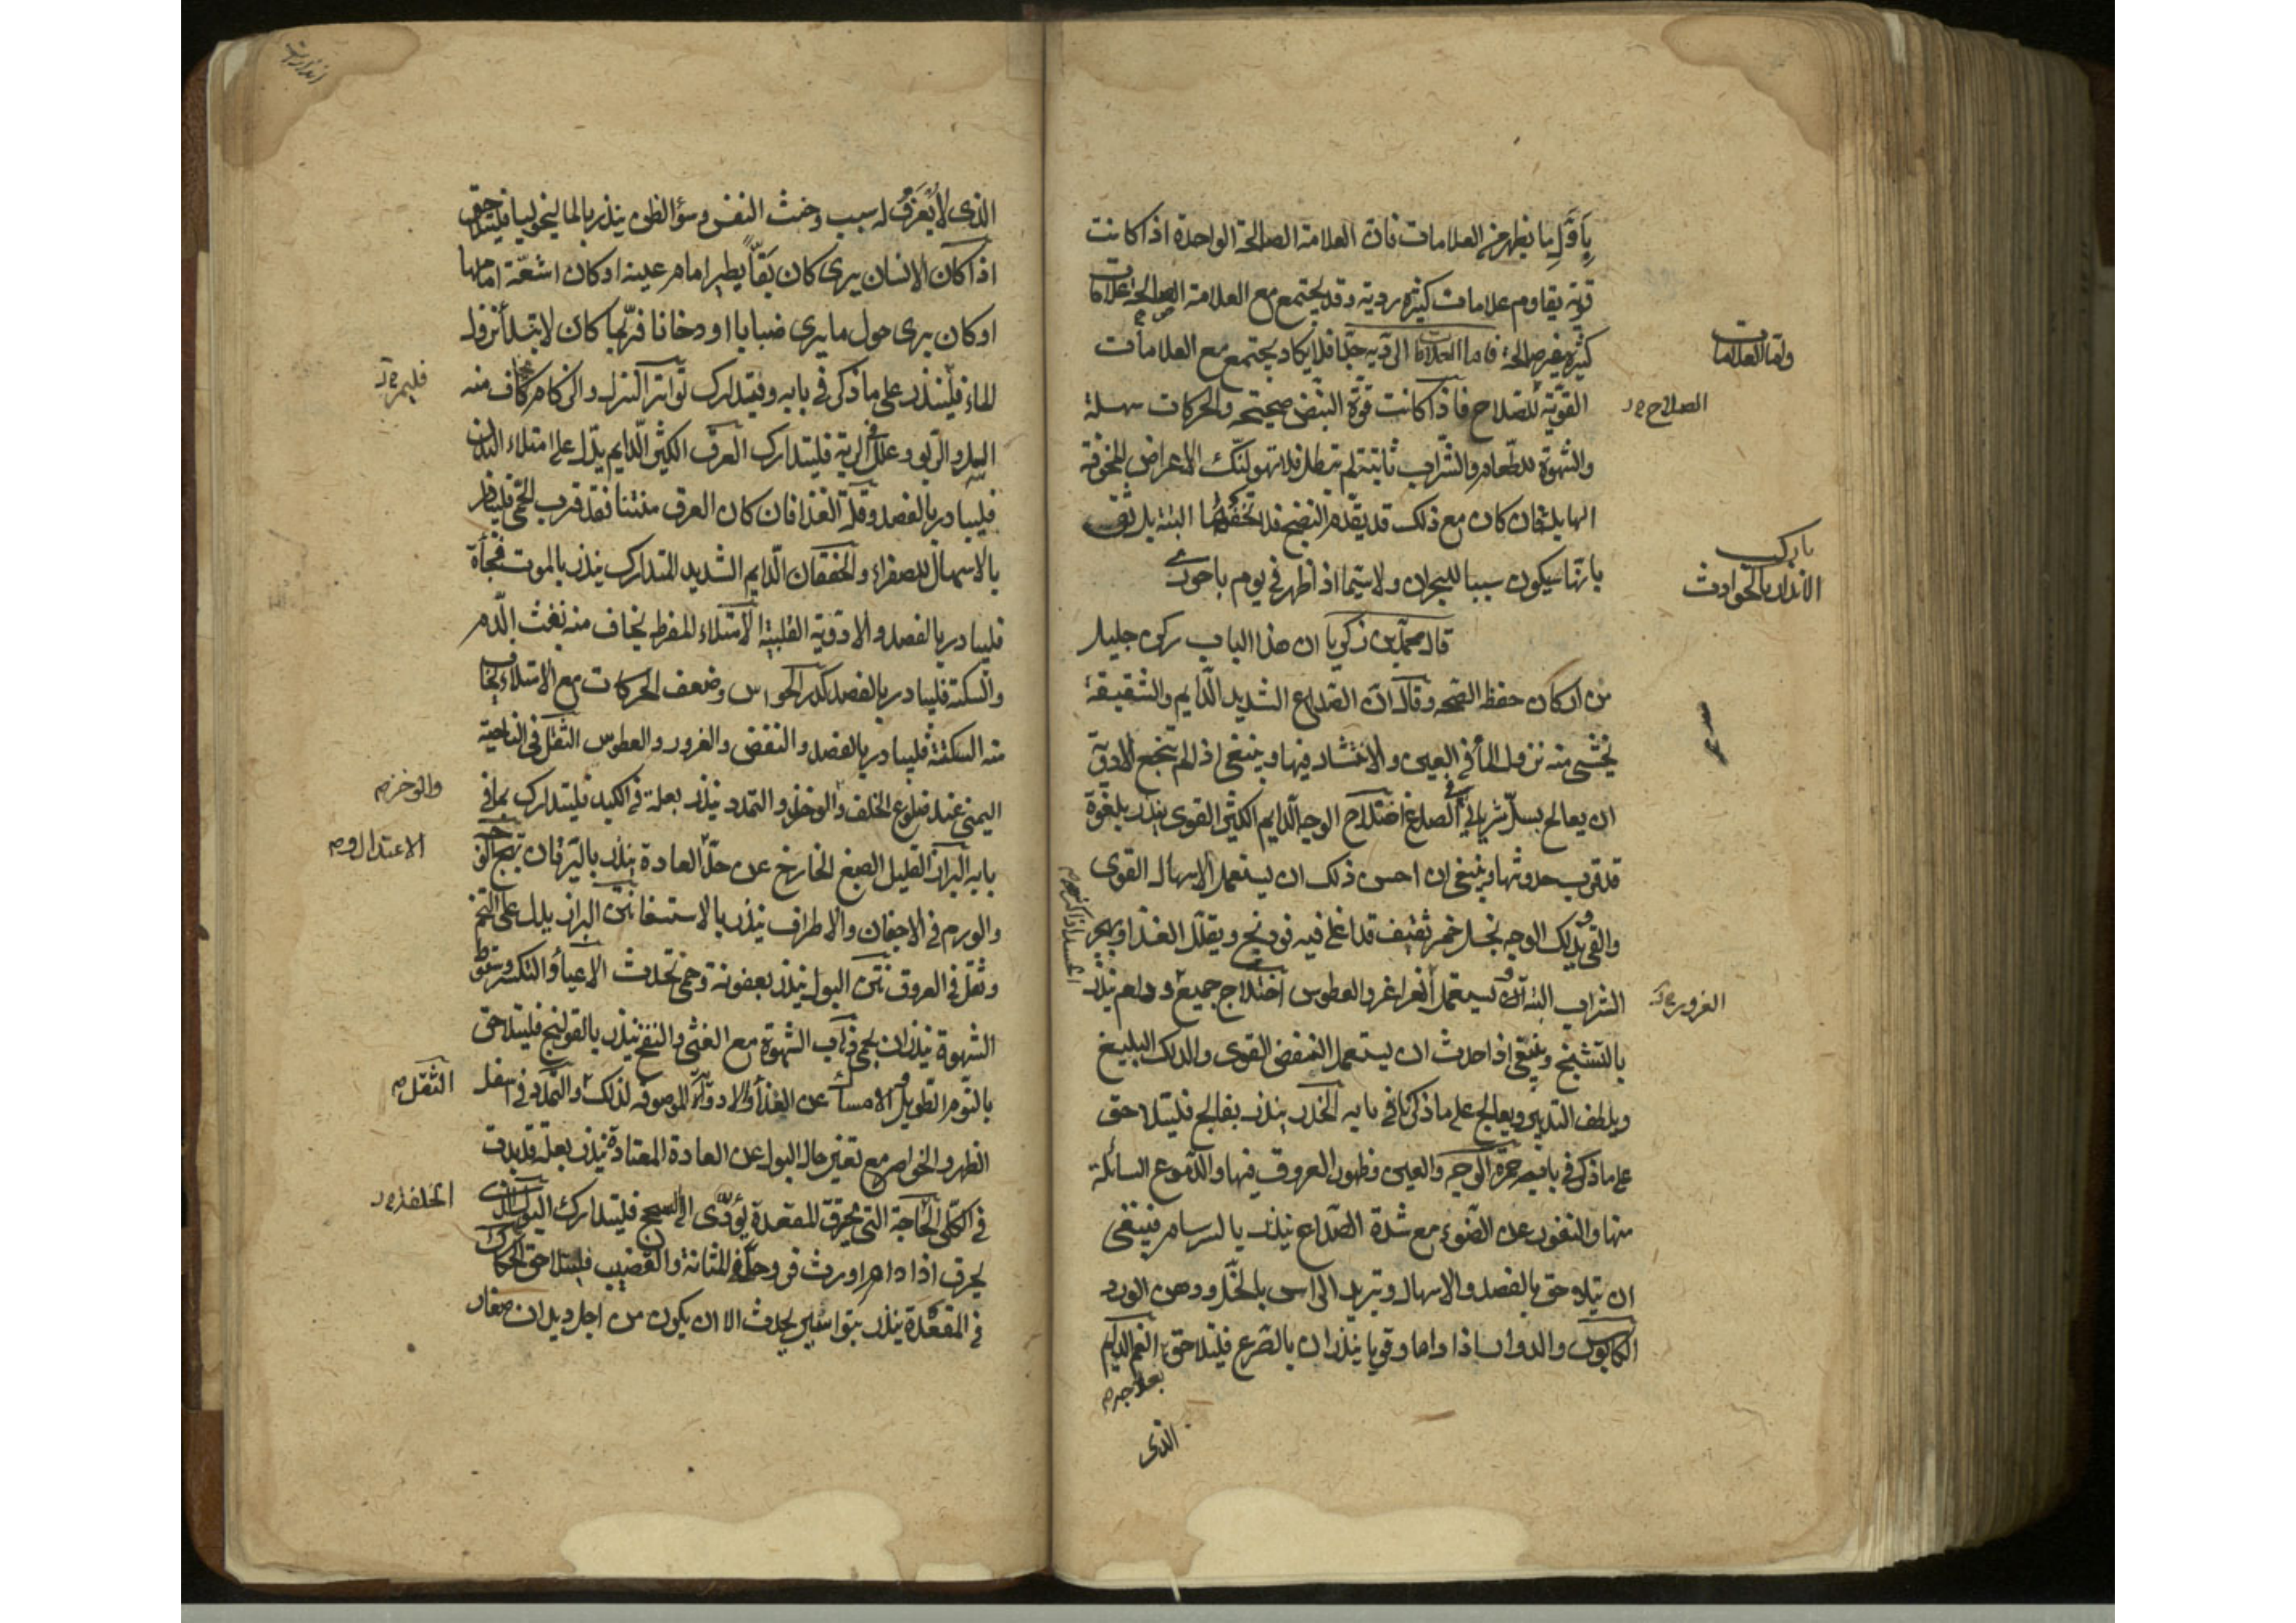 بِأَوَّلِ ما يظهر من العلامات فان العلامة الصالحة الواحدة اذا كانت
قوية يقاوم علامات كثيرة ردية وقد يجتمع مع العلامة الصالحة علامات
كثيرة غير صالحة فاما العلامات الردية جدا فلا يكاد يجتمع مع العلامات
القوية للصلاح فاذا كانت قوة النبض صحيحة والحركات سهلة
والشهوة للطعام والشراب ثابتة لم تبطل فلا تهولنّك الاعراض المخوفة
الهايلة فان كان مع ذلك قد تقدم النضج فلا تخفها البتة بل ثق
بانها سيكون سببا للبحران ولا سيما اذا ظهر في يوم باحورى
قال محمد بن زكريا ان هذا الباب ركن جليل
من اركان حفظ الصحة وقال ان الصداع الشديد الدايم والشقيقة
يخشى منه نزول الماء في العين والانتشار فيها وينبغي اذا لم تنجع الادوية
ان يعالج بسلّ شرياني الصدغ اختلاج الوجه الدايم الكثير القوى ينذر بلقوة
قد قرب حدوثها وينبغي ان احس ذلك ان يستعمل الاسهال القوى
والقى ويدلك الوجه بخل خمر ثقيف قد اغلى فيه فودنج ويقلل الغذا ويهجر
الشراب البتة او يستعمل الغراغر والعطوس اختلاج جميع دايم ينذر
بالتشنج وينبغي اذا حدث ان يستعمل النفض القوى والدلك البليغ
ويلطف التدبير ويعالج على ما ذكرنا في بابه الخدر ينذر بفالج فليتلاحق
على ما ذكر في بابه حمرة الوجه والعين وظهور العروق فيها والدموع السائلة
منها والنفور عن الضوء مع شدة الصداع ينذر بالسرسام فينبغي
ان يتلاحق بالفصد والاسهال وتبريد الراس بالخل ودهن الورد
الكابوس والدوار اذا داما وقويا ينذران بالصرع فليتلاحق الغم الدايم
بعلاجه
الذى
واما العلامات
الصلاح
باب
الانذار بالحوادث
الغرور
الذى لا يُعرف له سبب وخبث النفس وسوء الظن ينذر بالماليخوليا فليتلاحق
اذا كان الانسان يرى كان بَقّاً يطير امام عينه او كان اشعة امامها
او كان يرى حول ما يرى ضبابا او دخانا فربما كان لابتداء نزول
الماء فلينذر على ما ذكر في بابه ويتدارك تواتر النزل والزكام يخاف منه
السل والربو وعلل الرية فليتدارك العرق الكثير الدايم يدل على امتلاء البدن
فليبادر بالفصد وقلة الغذا فان كان العرق منتنا فقد قرب الحمى فليبادر
بالاسهال للصفراء والخفقان الدايم الشديد المتدارك ينذر بالموت فجأة
فليبادر بالفصد والادوية القلبية الامتلاء المفرط يخاف منه نفث الدم
والسكتة فليبادر بالفصد كدر الحواس وضعف الحركات مع الامتلاء يخاف
منه السكتة فليبادر بالفصد والنفض والغرور والعطوس الثقل في الناحية
اليمنى عند ضلوع الخلف والوخز والتمدد ينذر بعلة في الكبد فليتدارك بما في
بابه البراز القليل الصبغ الخارج عن حد العادة ينذر باليرقان تهيج الوجه
والورم في الاجفان والاطراف ينذر بالاستسقا نتن البراز يدل على التخم
وثقل في العروق نتن البول ينذر بعفونة وحمى تحدث الاعياء والتكسر وسقوط
الشهوة ينذران بحمى ذهاب الشهوة مع الغثى والنفخ ينذر بالقولنج فليتلاحق
بالنوم الطويل والامساك عن الغذاء والادوية الموصوفة لذلك والتمدد في اسفل
الظهر والخواصر مع تغير حال البول عن العادة المعتادة ينذر بعلة قد بدت
في الكلى الحاجة التي تحرق المقعدة يؤدى الى السحج فليتدارك البول الذى
يحرق اذا دام اورث قروحا في المثانة والقضيب فليتلاحق الحكاك
في المقعدة ينذر بتواسير يحدث الا ان يكون من اجل ديدان صغار
والوخز
الثقل